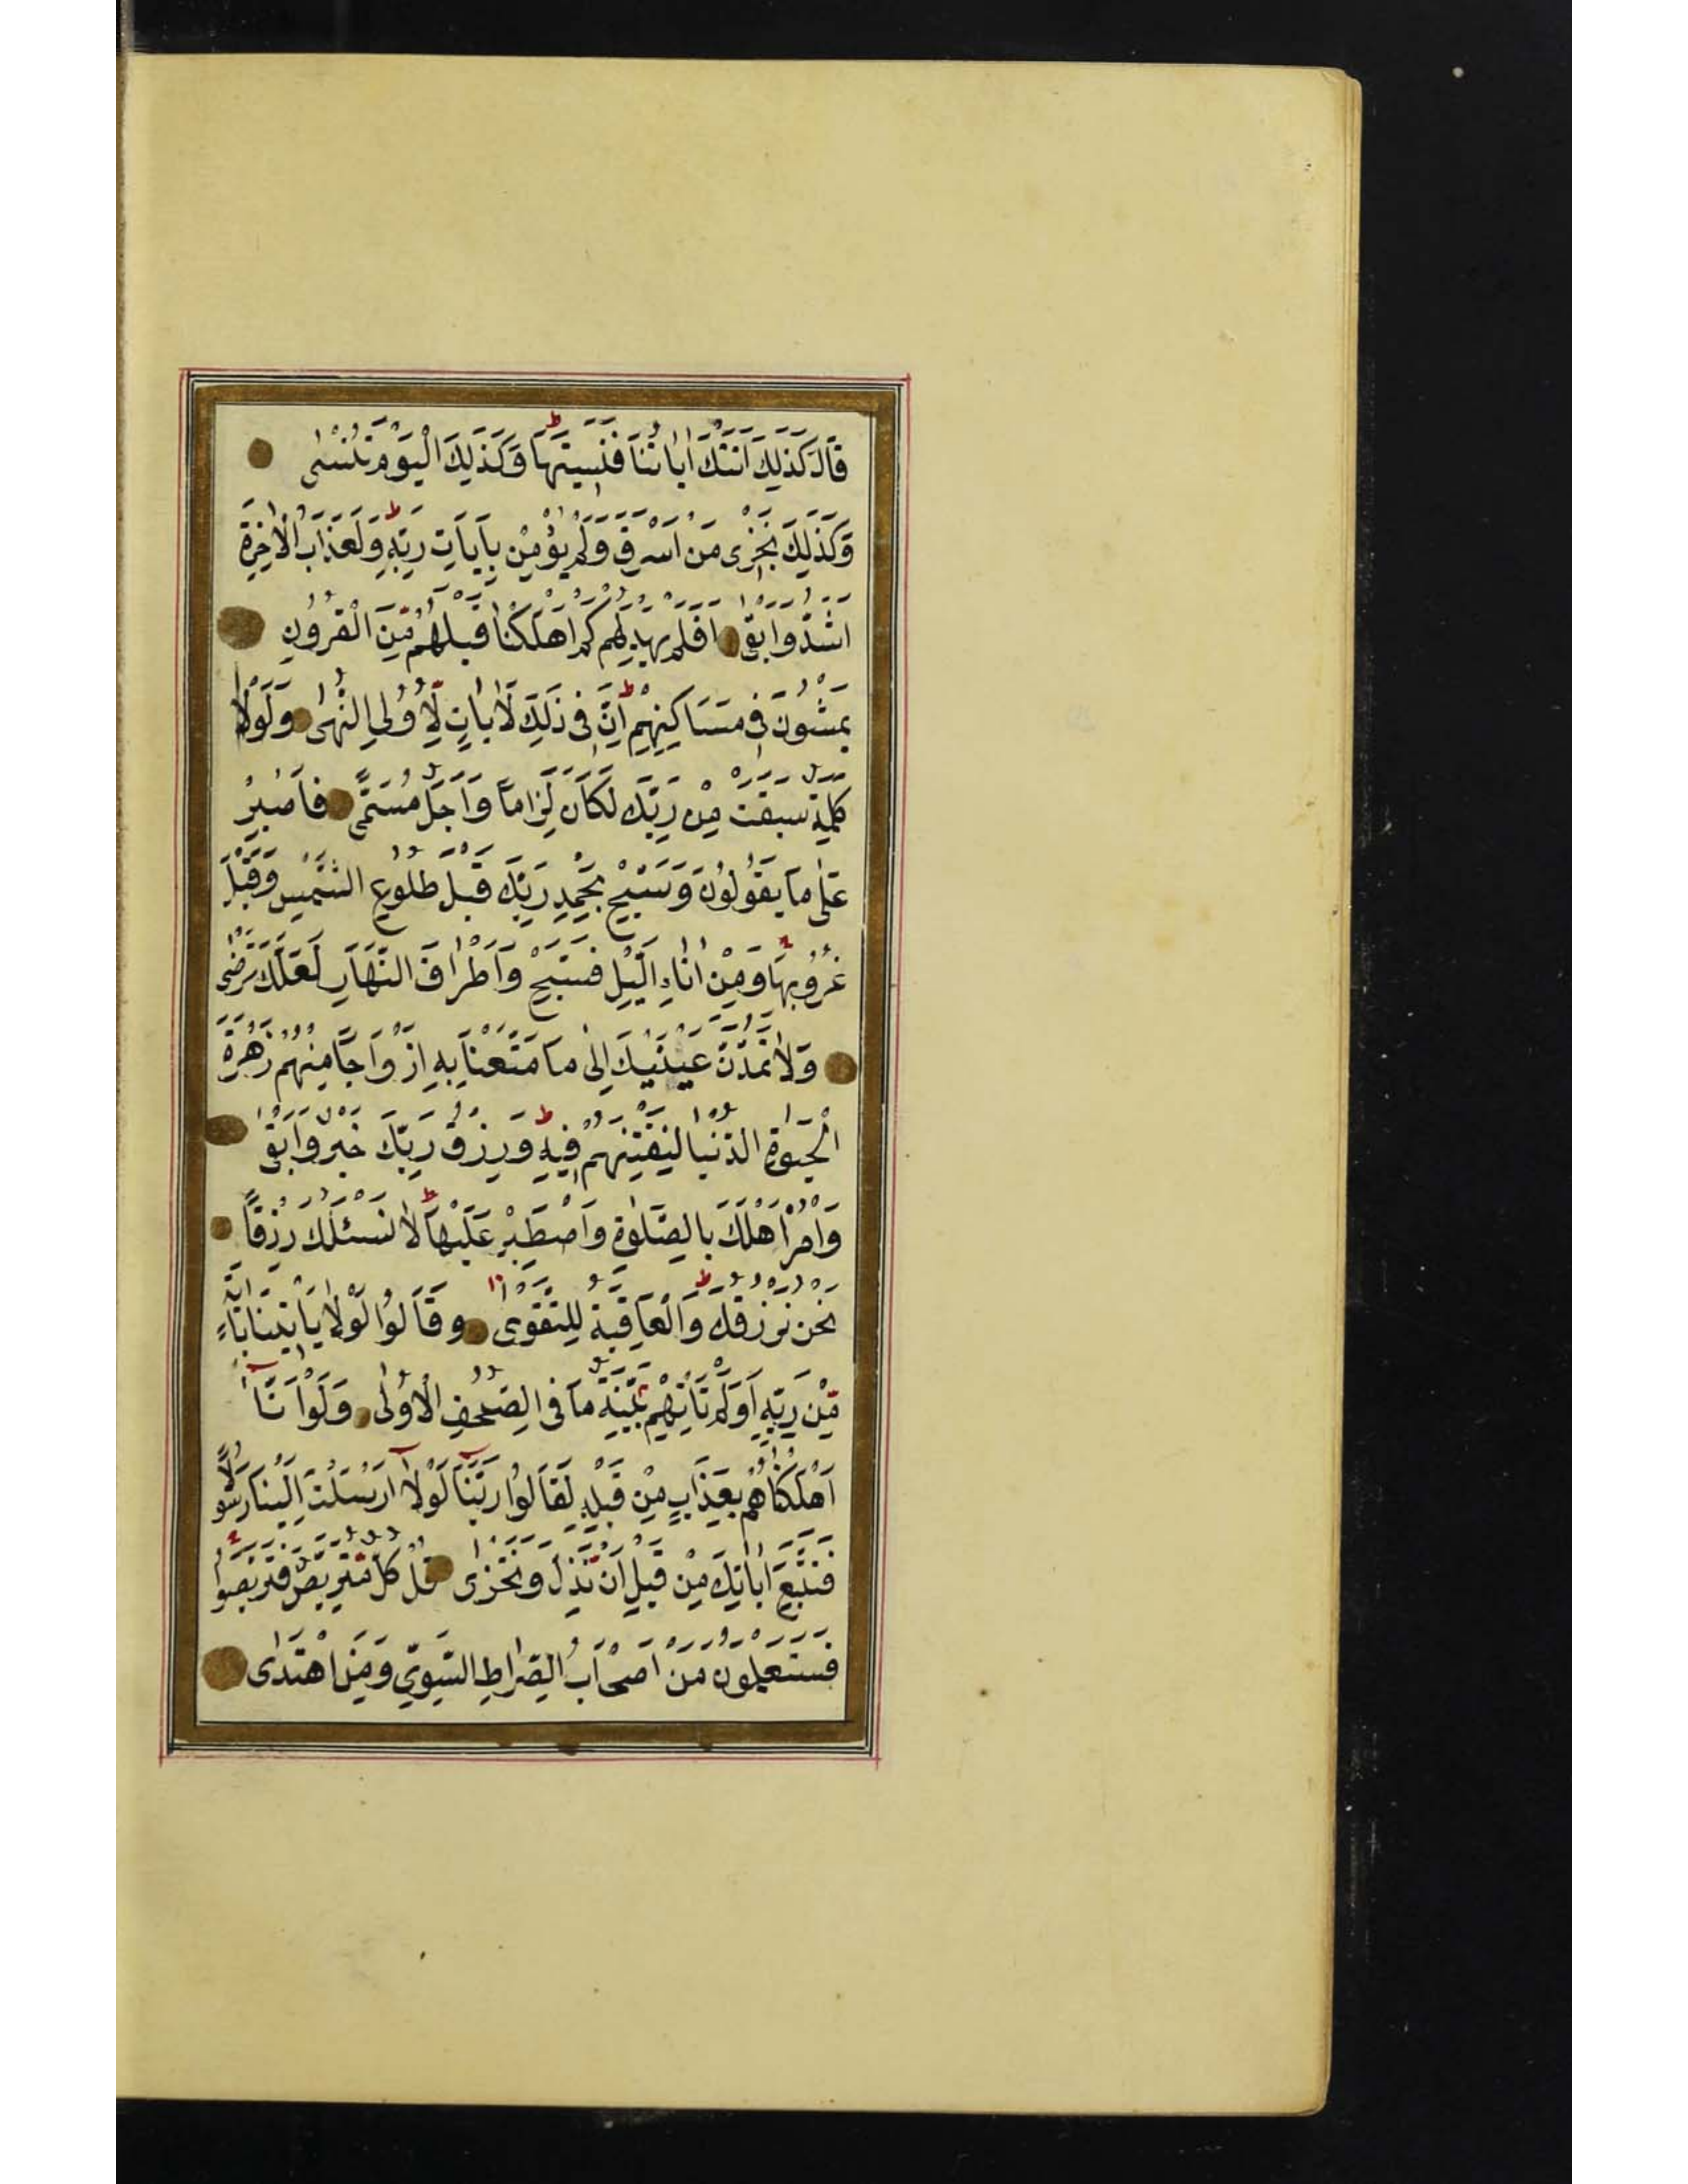 قَالَ كَذَلِكَ اَتَتْكَ اٰيَاتُنَا فَنَسِيتَهَا وَكَذَلِكَ الْيَوْمَ تُنْسٰى
وَكَذَلِكَ نَجْزِى مَنْ اَسْرَفَ وَلَمْ يُؤْمِنْ بِآيَاتِ رَبِّهِ وَلَعَذَابُ الْاٰخِرَةِ
اَشَدُّ وَاَبْقٰى اَفَلَمْ يَهْدِ لَهُمْ كَمْ اَهْلَكْنَا قَبْلَهُمْ مِّنَ الْقُرُونِ
يَمْشُونَ فِى مَسَاكِنِهِمْ اِنَّ فِى ذَلِكَ لَاٰيَاتٍ لِّاُولِى النُّهٰى وَلَوْلَا
كَلِمَةٌ سَبَقَتْ مِنْ رَبِّكَ لَكَانَ لِزَامًا وَاَجَلٌ مُسَمًّى فَاصْبِرْ
عَلٰى مَا يَقُولُونَ وَسَبِّحْ بِحَمْدِ رَبِّكَ قَبْلَ طُلُوعِ الشَّمْسِ وَقَبْلَ
غُرُوبِهَا وَمِنْ اٰنَاءِ الَّيْلِ فَسَبِّحْ وَاَطْرَافَ النَّهَارِ لَعَلَّكَ تَرْضٰى
وَلَا تَمُدَّنَّ عَيْنَيْكَ اِلٰى مَا مَتَّعْنَا بِهِ اَزْوَاجًا مِنْهُمْ زَهْرَةَ
الْحَيٰوةِ الدُّنْيَا لِنَفْتِنَهُمْ فِيهِ وَرِزْقُ رَبِّكَ خَيْرٌ وَاَبْقٰى
وَاْمُرْ اَهْلَكَ بِالصَّلٰوةِ وَاصْطَبِرْ عَلَيْهَا لَا نَسْئَلُكَ رِزْقًا
نَحْنُ نَرْزُقُكَ وَالْعَاقِبَةُ لِلتَّقْوٰى وَقَالُوا لَوْلَا يَاْتِينَا بِاٰيَةٍ
مِّنْ رَبِّهِ اَوَلَمْ تَاْتِهِمْ بَيِّنَةُ مَا فِى الصُّحُفِ الْاُولٰى وَلَوْ اَنَّا
اَهْلَكْنَاهُمْ بِعَذَابٍ مِنْ قَبْلِهِ لَقَالُوا رَبَّنَا لَوْلَا اَرْسَلْتَ اِلَيْنَا رَسُولًا
فَنَتَّبِعَ اٰيَاتِكَ مِنْ قَبْلِ اَنْ نَّذِلَّ وَنَخْزٰى قُلْ كُلٌّ مُّتَرَبِّصٌ فَتَرَبَّصُوا
فَسَتَعْلَمُونَ مَنْ اَصْحَابُ الصِّرَاطِ السَّوِىِّ وَمَنِ اهْتَدٰى